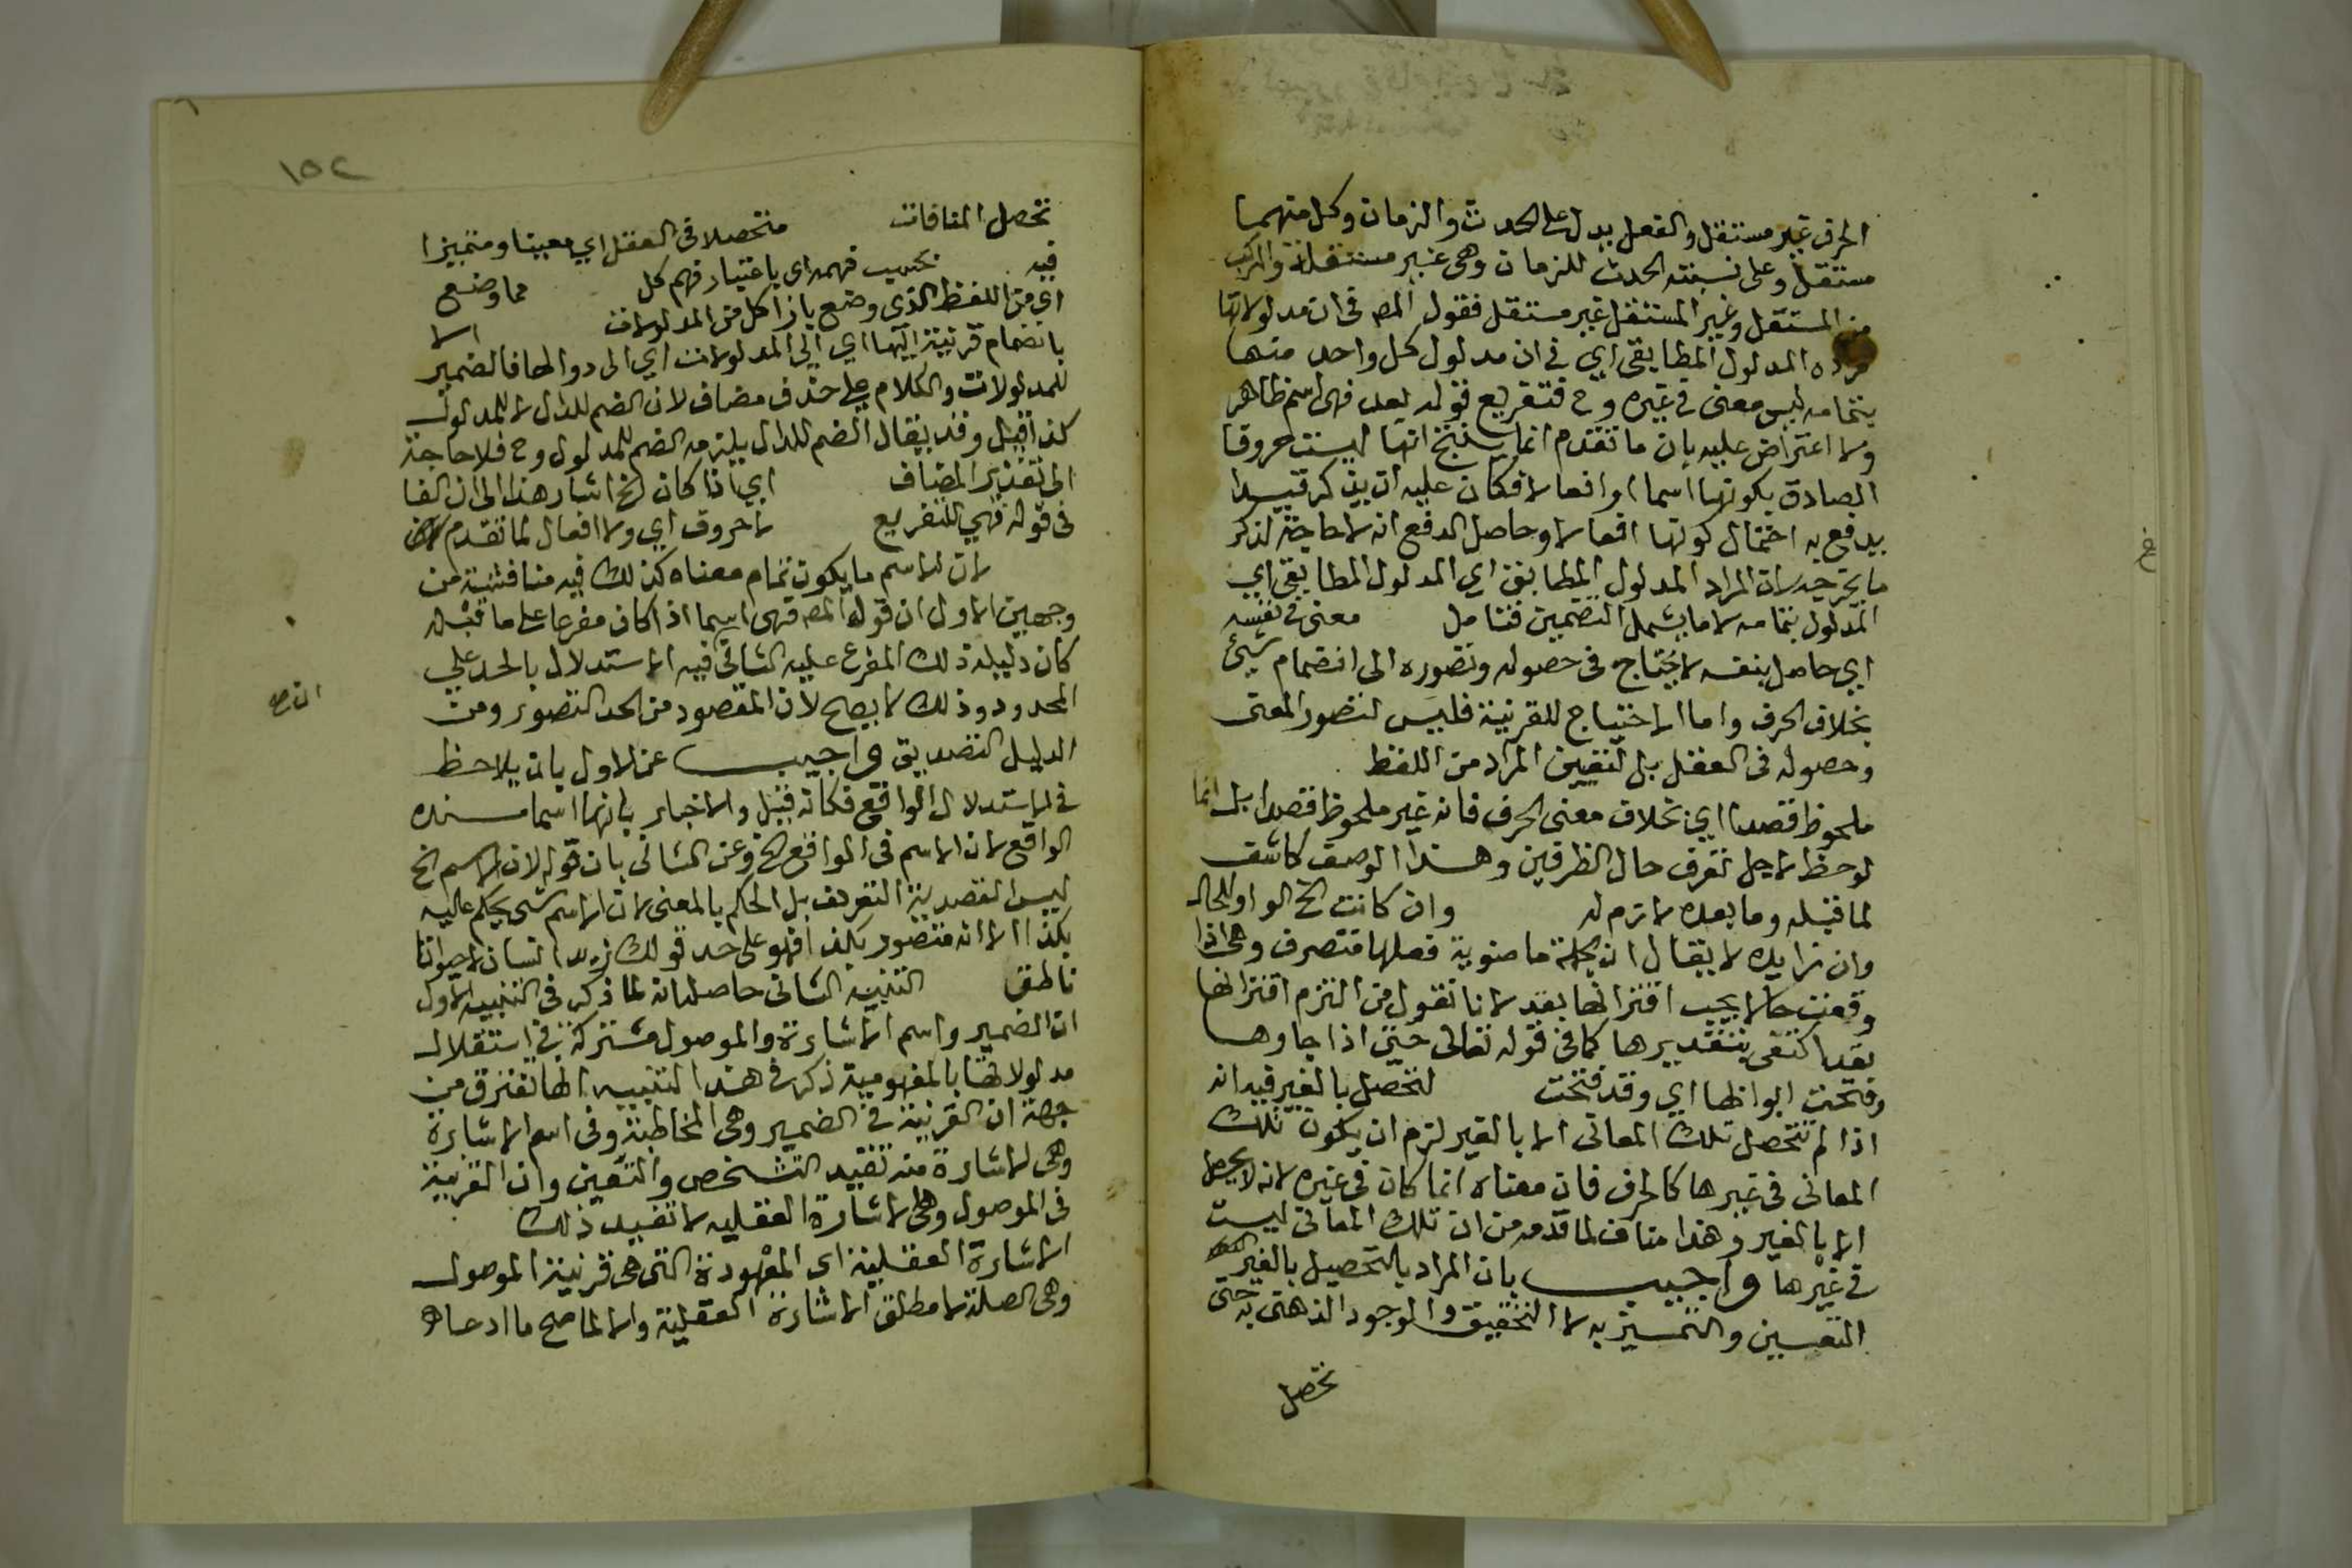 الحرف غير مستقل والفعل يدل على الحدث والزمان وكل منهما
مستقل وعلى نسبته الحدث للزمان وهى غير مستقلة والمركب
من المستقل وغير المستقل غير مستقل فقول المص فى ان مدلولاتها
مراده المدلول المطابقى اي فى ان مدلول كل واحد منها
بتمامه ليس معنى فى غيره وح فتفريع قوله بعد فهى اسم ظاهر
ولا اعتراض عليه بان ما تقدم انما ينتج انها ليست حروفا
الصادق بكونها اسما او افعالا فكان عليه ان يذكر قيدا
يدفع به احتمال كونها افعالا وحاصل الدفع انه لا حاجة لذكر
ما يخرجه لان المراد المدلول المطابق اي المدلول المطابقى اي
المدلول بتمامه لا ما يشمل التضمين فتامل معنى فى نفسه
اي حاصل بنفسه لا يحتاج فى حصوله وتصوره الى انضمام شيئ
بخلاف الحرف واما الاحتياج للقرينة فليس لتصور المعنى
وحصوله فى العقل بل لتعيين المراد من اللفظ
ملحوظ قصدا اي بخلاف معنى الحرف فانه غير ملحوظ قصدا بل انما
لوحظ لاجل تعرف حال الطرفين وهذا الوصف كاشف
لما قبله وما بعده لازم له وان كانت الخ الواو للحال
وان زايده لا يقال ان جملة ماضوية فعلها متصرف وهى اذا
وقعت حالا يجب اقترانها بقد لانا نقول من التزم اقترانها
بقد اكتفى بتقديرها كما فى قوله تعالى حتى اذا جاوها
وفتحت ابوابها اي وقد فتحت لتحصل بالغير فيه انه
اذا لم تتحصل تلك المعانى الا بالغير لزم ان يكون تلك
المعانى فى غيرها كالحرف فان معناه انما كان فى غيره لانه لا يحصل
الا بالغير وهذا مناف لما قدمه من ان تلك المعانى ليست
فى غيرها واجيب بان المراد بالتحصيل بالغير
التعيين والتمييز به لا التحقيق والوجود الذهنى به حتى
تحصل
١٥٢
تحصل المنافات متحصلا فى العقل اي معينا ومتميزا
فيه بحسب فهمه اي باعتبار فهم كل مما وضع
اي من اللفظ الذى وضع بازا كل من المدلولات الا
بانضمام قرينة اليها اي الى المدلولات اي الى دوالها فالضمير
للمدلولات والكلام على حذف مضاف لان الضم للدال لا للمدلول
كذا قيل وقد يقال الضم للدال يلزمه الضم للمدلول وح فلا حاجة
الى تقدير المضاف اي اذا كان الخ اشار هذا الى ان الفا
فى قوله فهي للتفريع لا حروف اي ولا افعال لما تقدم
لان الاسم ما يكون تمام معناه كذلك فيه مناقشة من
وجهين الاول ان قوله المص فهى اسما اذا كان مفرعا على ما قبله
كان دليله ذلك المفرع عليه الثانى فيه الاستدلال بالحد على
المحدود وذلك لا يصح لان المقصود من الحد التصور ومن
الدليل التصديق واجيب عن الاول بان يلاحظ
فى الاستدلال الواقع فكانه قيل والاخبار بانها اسما سنده
الواقع لان الاسم فى الواقع الخ وعن الثانى بان قوله لان الاسم الخ
ليس القصد به التعريف بل الحكم بالمعنى لان الاسم شى يحكم عليه
بكذا الا انه متصور بكذا فهو على حد قولك زيد انسان لا حيوانا
ناطق التنبيه الثانى حاصله انه لما ذكر فى التنبيه الاول
ان الضمير واسم الاشارة والموصول مشتركة فى استقلال
مدلولاتها بالمفهومية ذكر فى هذا التنبيه انها تفترق من
جهة ان القرينة فى الضمير وهى المخاطبة وفى اسم الاشارة
وهى الاشارة منه تفيد التشخص والتعين وان القرينة
فى الموصول وهى الاشارة العقليه لا تفيد ذلك
الاشارة العقلية اى المعهودة التى هى قرينة الموصول
وهى الصلة لا مطلق الاشارة العقلية والا لما صح ما ادعاه